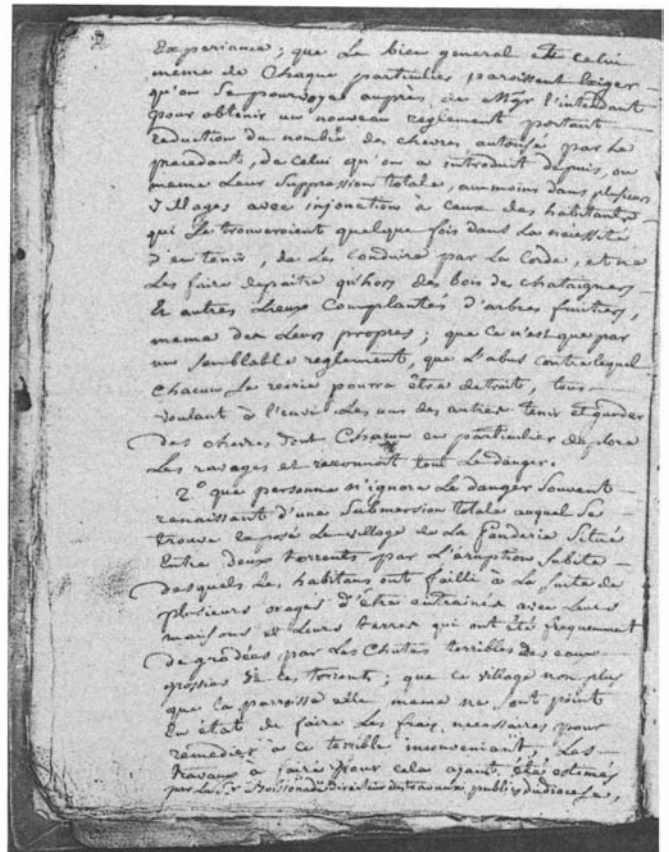 2
Experiance; que Le bien general Et celui
meme de Chaque particulier paroissent Exiger
qu'on Se pourvoye auprès de Mgr l'intendant
pour obtenir un nouveau reglement portant
reduction du nombre des chevres autorisé par Le
precedant, de celui qu'on a introduit depuis, ou
meme Leur Suppression totale, aumoins dans plusieurs
Villages avec injonction à Ceux des habitants
qui Se trouveroient quelque fois dans La nécessité
d'en tenir, de Les Conduire par La Corde, et ne
Les faire depaitre qu'hors des bois de chataigners
Et autres Lieux Complantés d'arbres fruitiers,
meme des Leurs propres; que Ce n'est que par
un Semblable reglement, que L'abus contre lequel
Chacun Se recrie pourra être detruit, tous
voulant à l'envi Les uns des autres tenir et garder
des chevres dont Chacun en particulier deplore
Les ravages et reconnoit tout Le danger.
2º que personne n'ignore Le danger Souvent
renaissant d'une Submersion totale auquel Se
trouve exposé Le village de La Fonderie Situé
Entre deux torrents par L'éruption Subite
desquels Les habitans ont failli à La Suite de
plusieurs orages d'être entrainés avec Leurs
maisons et Leurs terres qui ont été frequemment
degradées par Les Chutes terribles des eaux
grossies de ces torrents; que ce village non plus
que la parroisse elle meme ne Sont point
En état de faire Les frais necessaires pour
remedier à ce terrible inconveniant, Les
travaux à faire pour cela ajant été estimés
par Le Sr Boissonade Directeur des travaux publics du diocese,